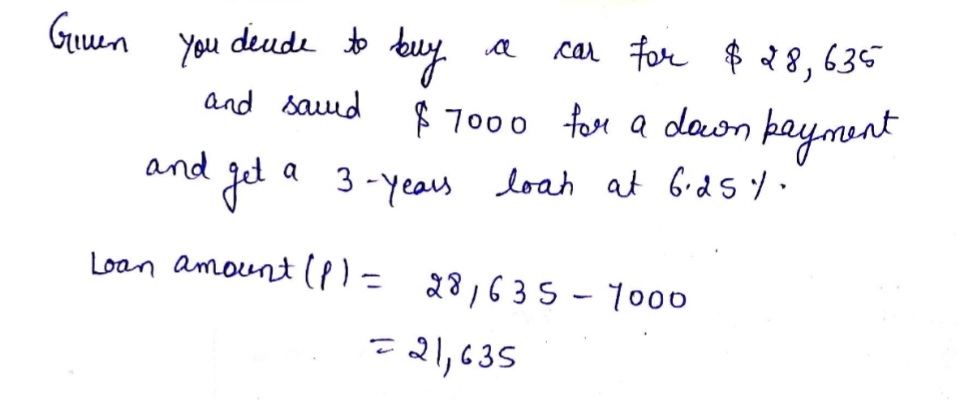 Given you decide to buy a car for $ 28,635
and saved $ 7000 for a down payment
and get a 3-years loan at 6.25%.
Loan amount (P) = 28,635 - 7000
= 21,635